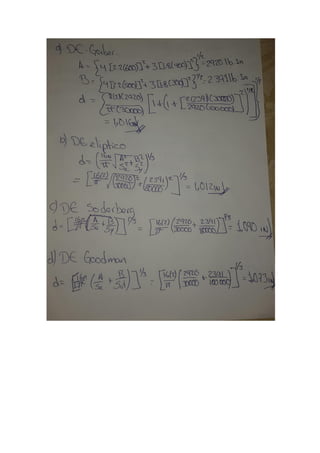 a) DE-Gerber
A = {4[2.2(600)]² + 3[1.8(400)]²}^1/2 = 2920 lb·in
B = {4[2.2(500)]² + 3[1.8(300)]²}^1/2 = 2391 lb·in
d = {8(2)(2920)/π(30000) [1+(1+[2(2391)(30000)/2920(100000)]²)^1/2]}^1/3
= 1,016 in
b) DE eliptico
d = (16n/π √(A²/Se² + B²/Sy²))^1/3
= [16(2)/π √((2920/30000)² + (2391/80000)²)]^1/3 = 1,012 in
c) DE Soderberg
d = [16n/π (A/Se + B/Sy)]^1/3 = [16(2)/π (2920/30000 + 2391/80000)]^1/3 = 1.090 in
d) DE Goodman
d = [16n/π (A/Se + B/Sut)]^1/3 = [16(2)/π (2920/30000 + 2391/100000)]^1/3 = 1.073 in